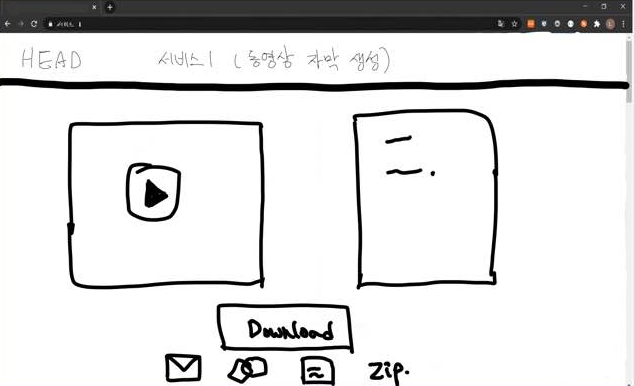 HEAD 서비스1 (동영상 자막 생성)
Download
zip.